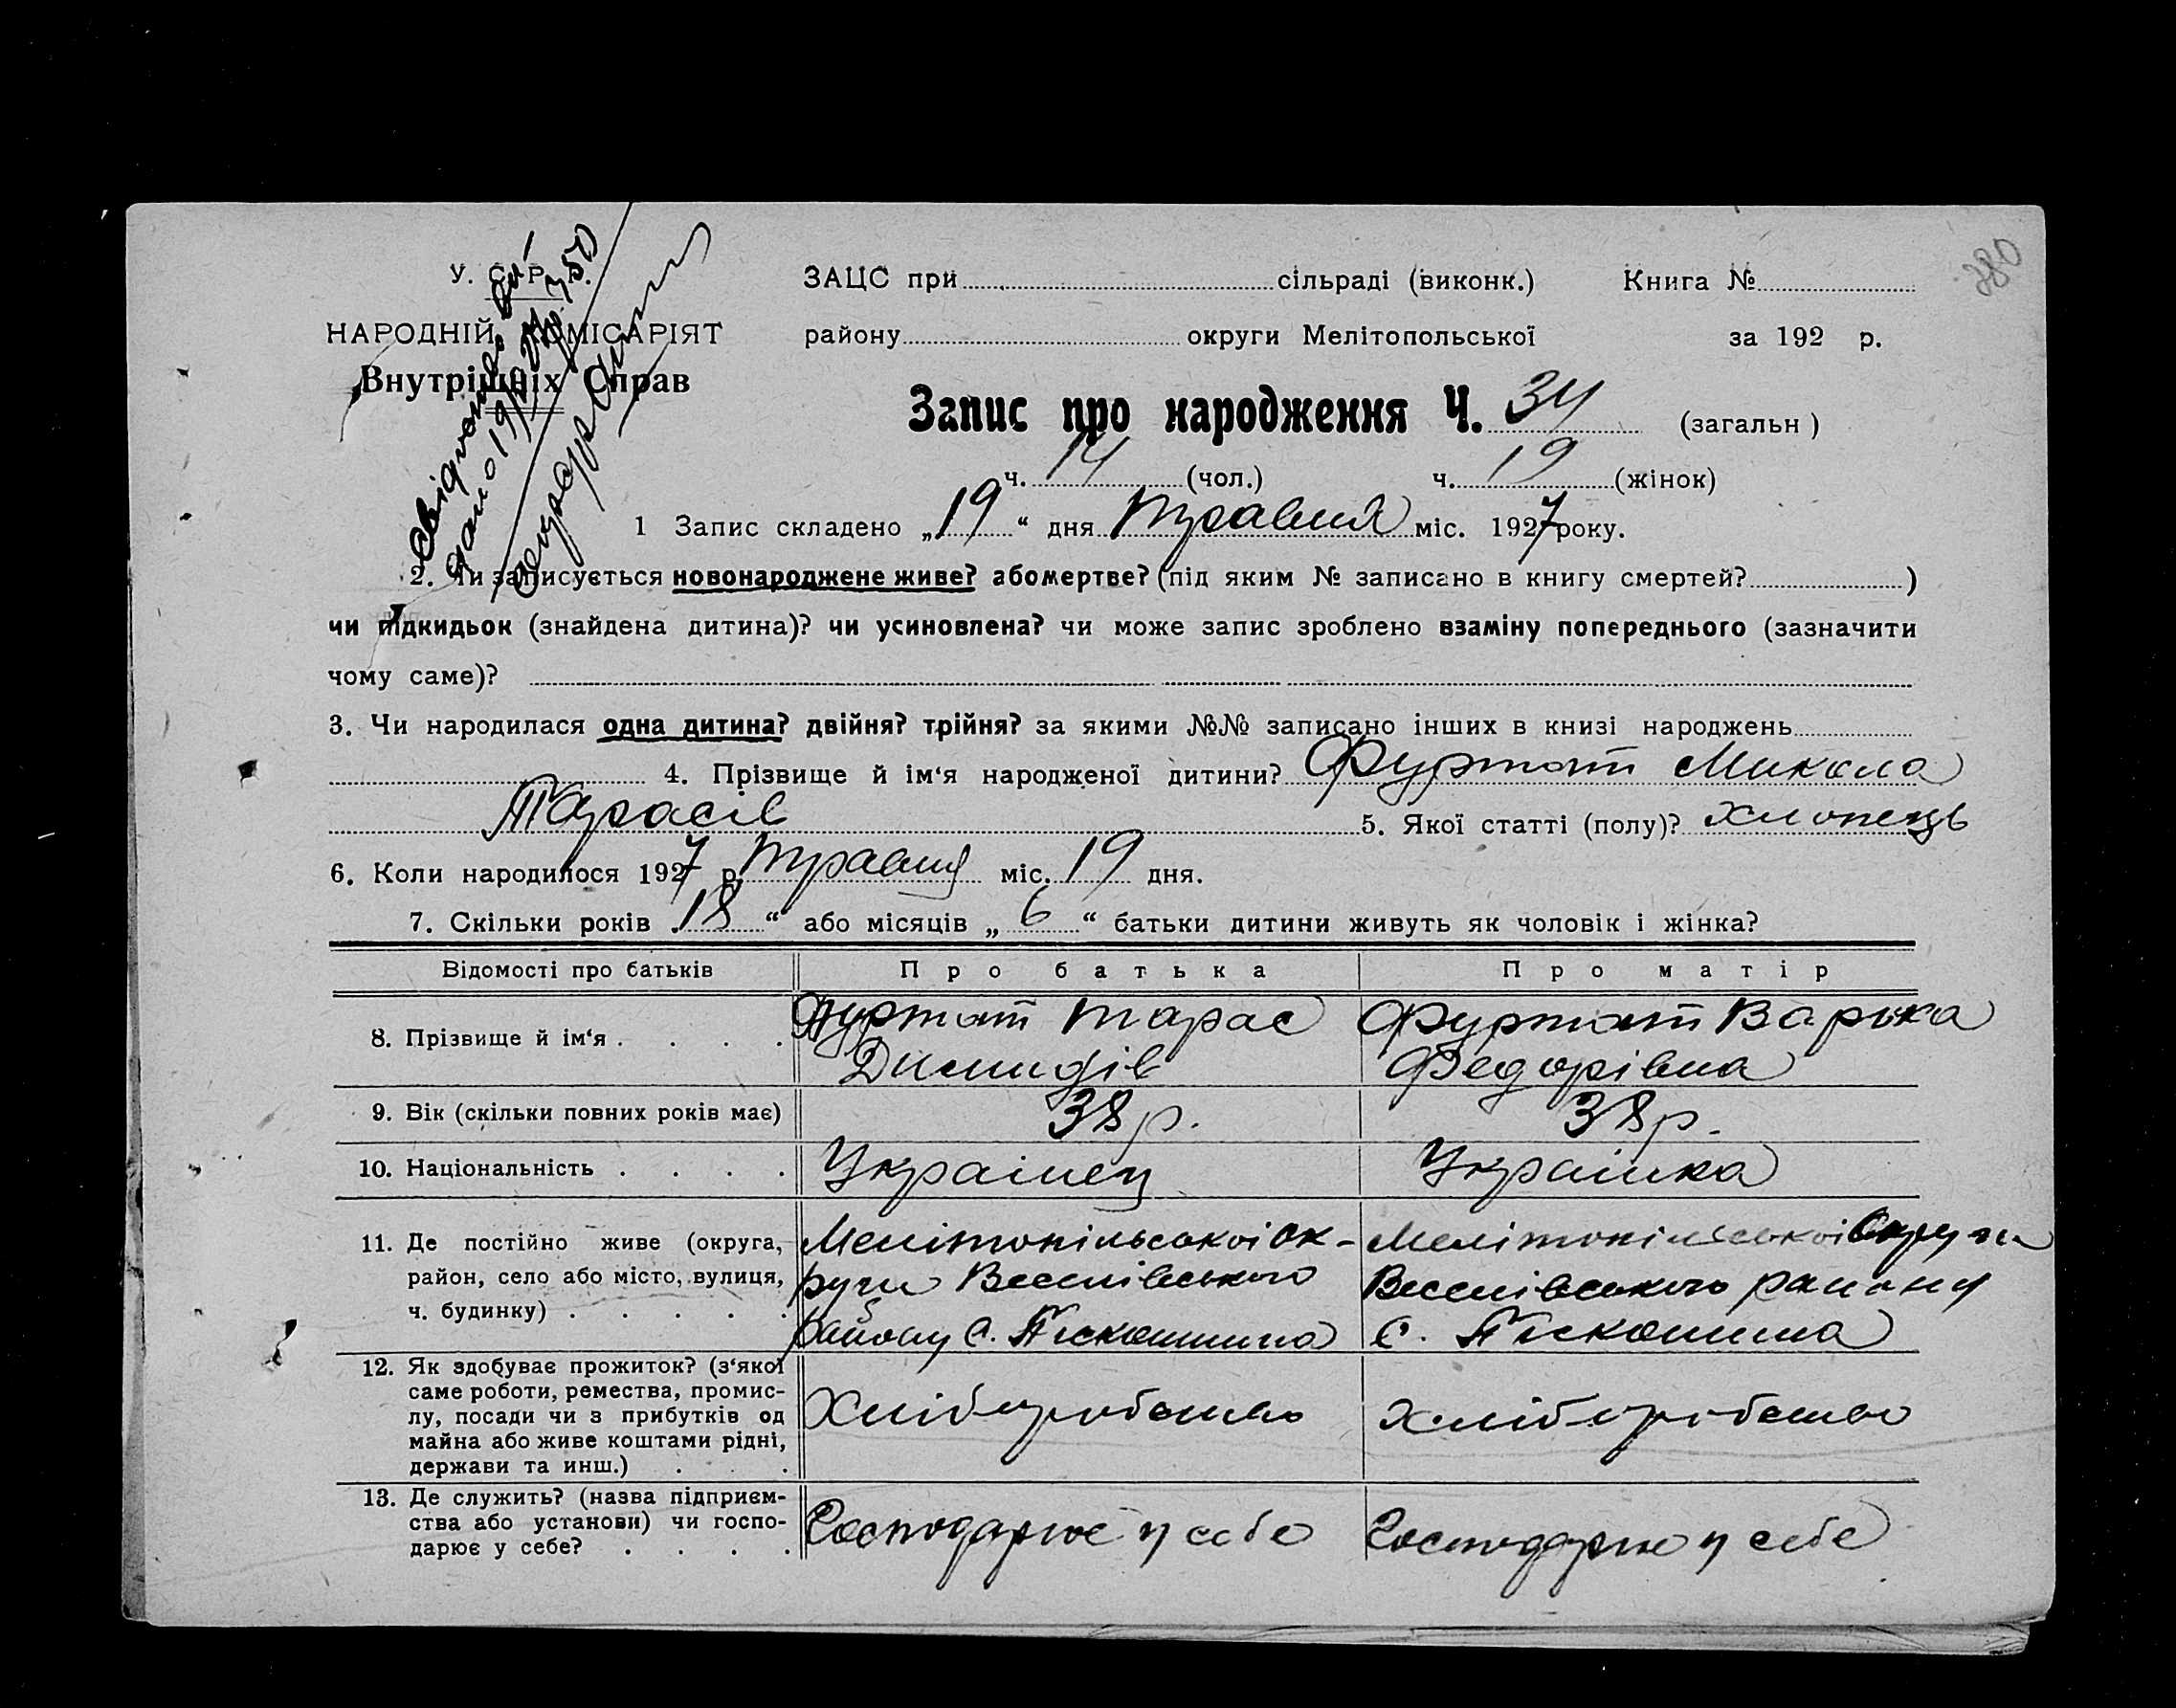 280
У. С. Р. Р.
ЗАЦС при сільраді (виконк.) Книга №
НАРОДНІЙ КОМІСАРІЯТ
району округи Мелітопольської за 192 р.
Внутрішніх Справ
Запис про народження Ч. 34 (загальн)
ч. 14 (чол.) ч. 19 (жінок)
1 Запис складено „19“ дня травня міс. 1927 року.
2. Чи записується новонароджене живе? або мертве? (під яким № записано в книгу смертей? )
чи підкидьок (знайдена дитина)? чи усиновлена? чи може запис зроблено взаміну попереднього (зазначити
чому саме)?
3. Чи народилася одна дитина? двійня? трійня? за якими №№ записано інших в книзі народжень
4. Прізвище й ім‘я народженої дитини? Фуртат Микола
Тарасів 5. Якої статті (полу)? хлопець
6. Коли народилося 1927 р. травня міс. 19 дня.
7. Скільки років „18“ або місяців „6“ батьки дитини живуть як чоловік і жінка?
Відомості про батьків Про батька Про матір
8. Прізвище й ім‘я . . . . Фуртат Тарас Фуртат Варька
Федорівна
9. Вік (скільки повних років має) 38 р. 38 р.
10. Національність . . . . Українец Українка
11. Де постійно живе (округа, Мелітопільської ок- Мелітопільської округи
район, село або місто, вулиця, руги Веселівського Веселівського району
ч. будинку) . . . . . району с. Піскошина с. Піскошина
12. Як здобуває прожиток? (з‘якої
саме роботи, ремества, промис-
лу, посади чи з прибутків од Хліборобство Хліборобство
майна або живе коштами рідні,
держави та инш.) . . .
13. Де служить? (назва підприєм-
ства або установи) чи госпо- Господарює у себе Господарює у себе
дарює у себе? . . . .